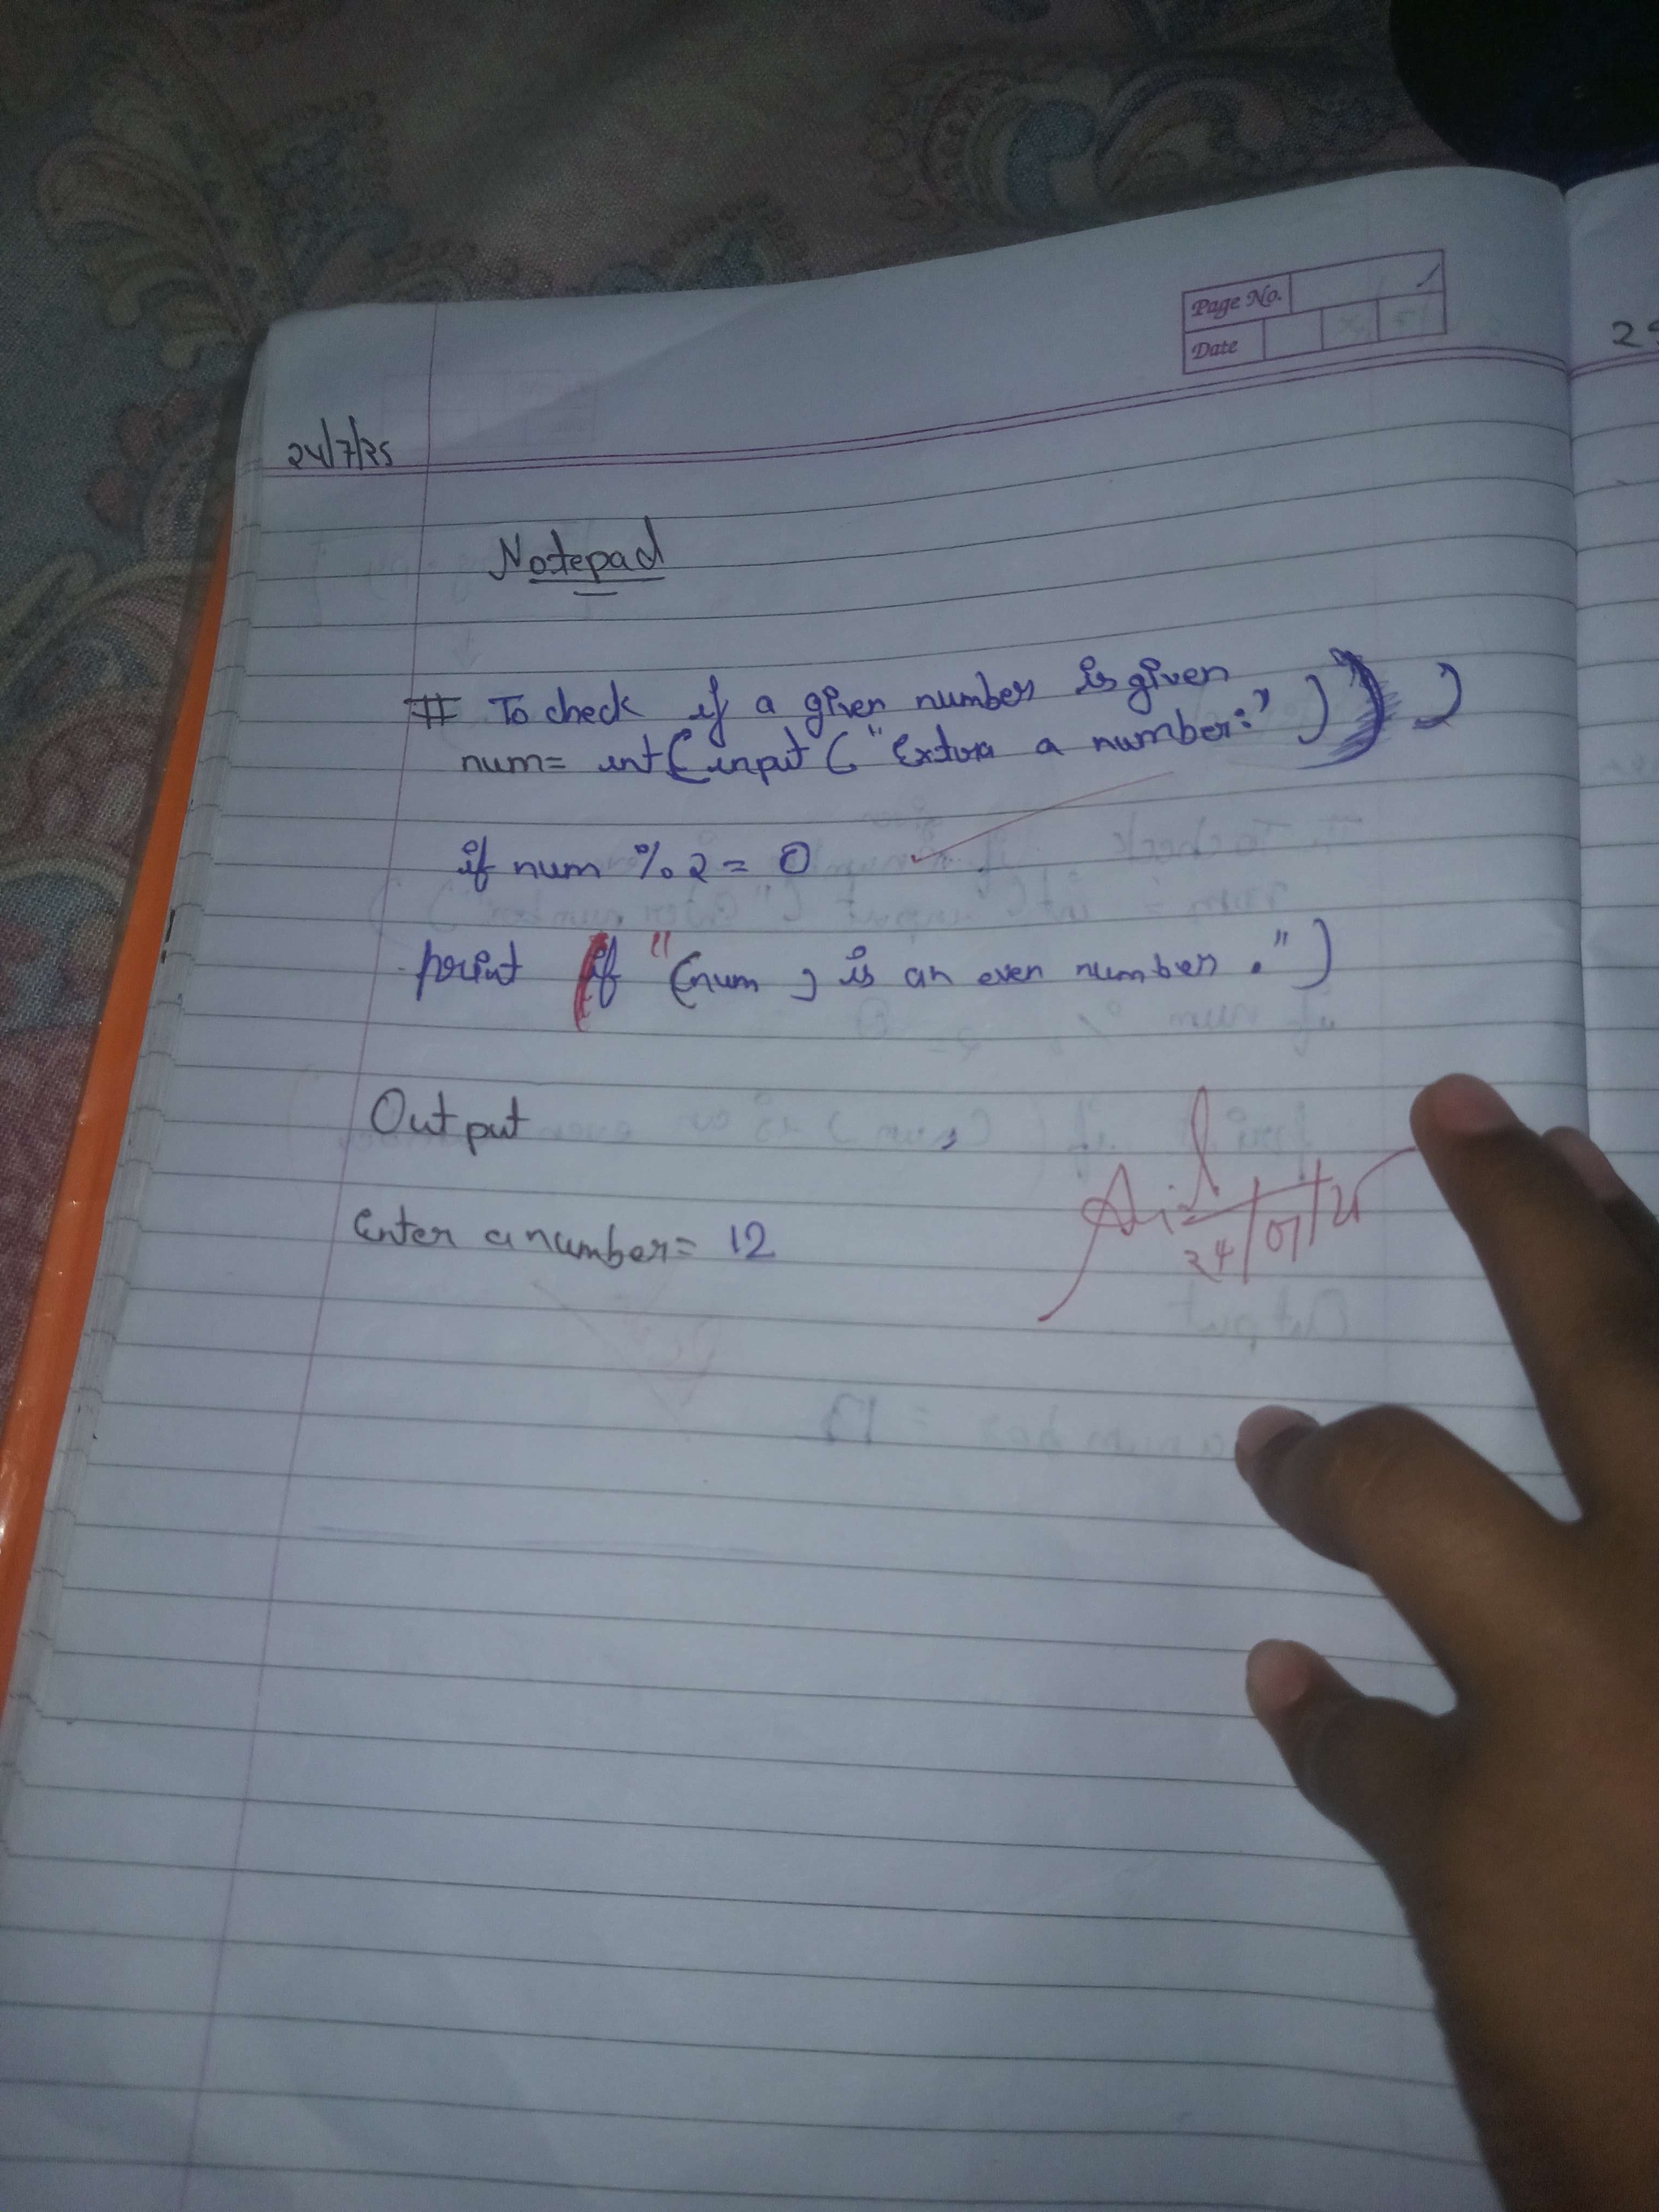 Page No.
Date
24/7/25
Notepad
# To check if a given number is given
num= int(input ("Extra a number:")))
if num % 2 = 0
print if "(num ) is an even number .")
Output
Enter a number= 12
24/07/25